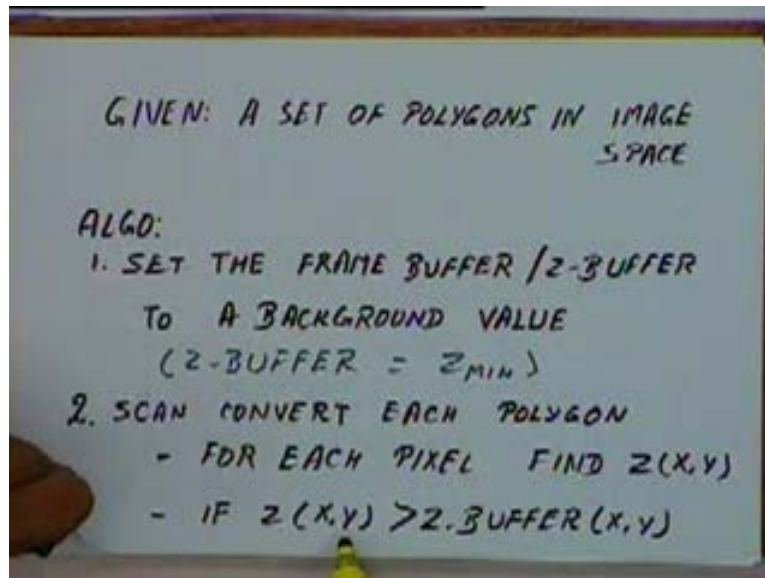 GIVEN: A SET OF POLYGONS IN IMAGE
SPACE
ALGO:
1. SET THE FRAME BUFFER / Z-BUFFER
TO A BACKGROUND VALUE
(Z-BUFFER = ZMIN)
2. SCAN CONVERT EACH POLYGON
- FOR EACH PIXEL FIND Z(X,Y)
- IF Z(X,Y) > Z.BUFFER(X,Y)